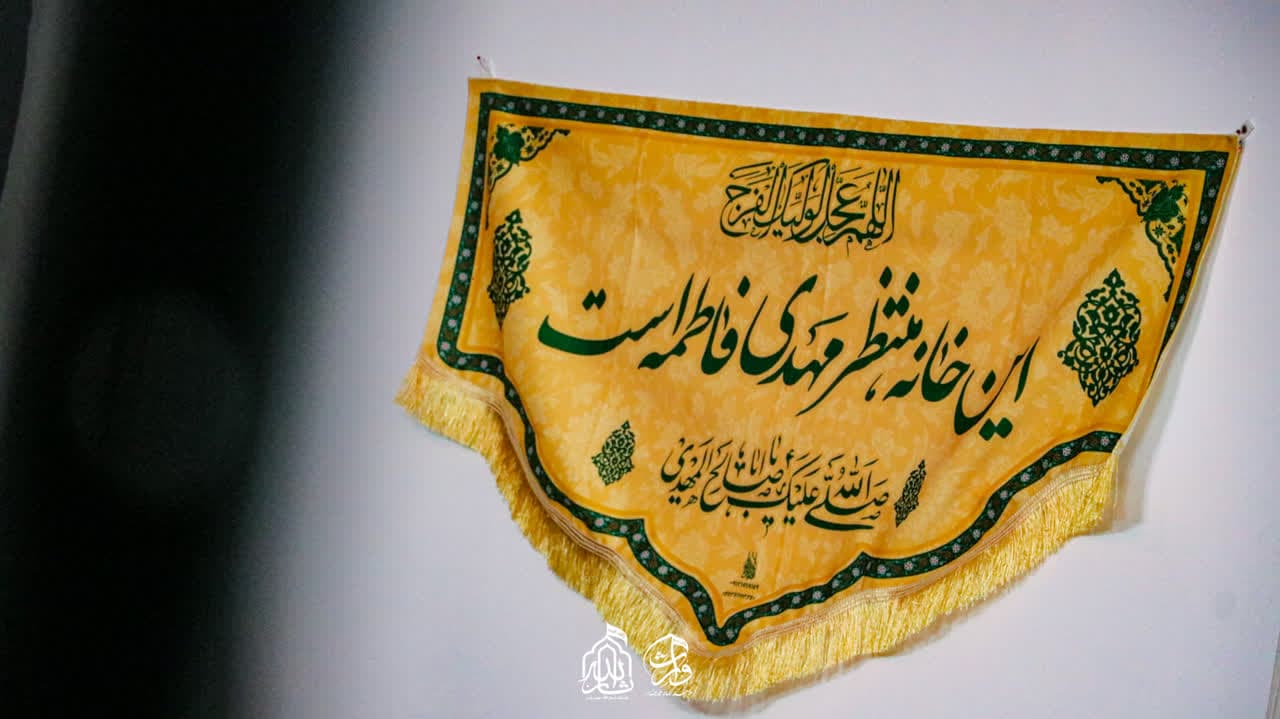 اللّهمّ عجّل لولیّک الفرج
این خانه منتظر مهدی فاطمه است
صلّی اللّه علیک یا اباصالح المهدی